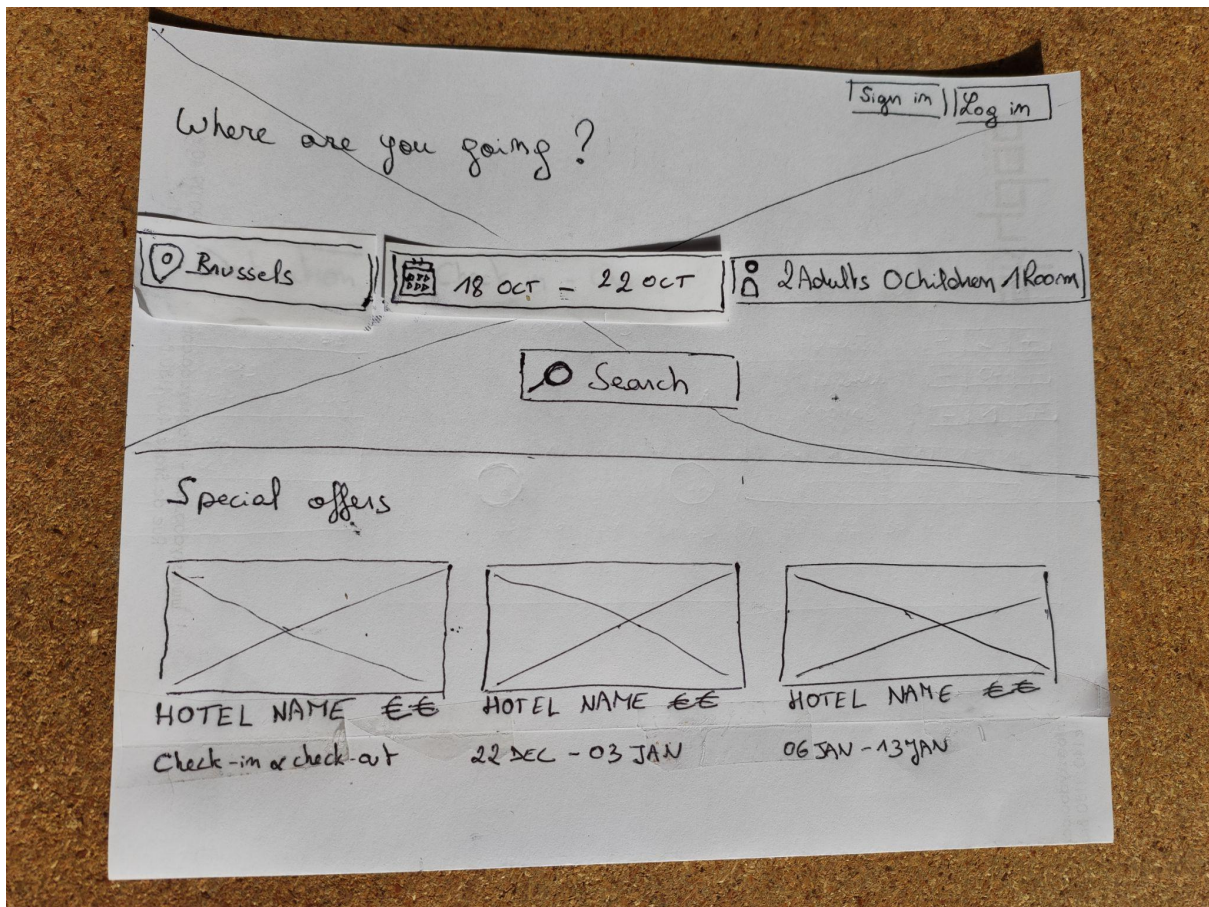 Sign in Log in
Where are you going?
Brussels 18 OCT - 22 OCT 2 Adults 0 Children 1 Room
Search
Special offers
HOTEL NAME €€ HOTEL NAME €€ HOTEL NAME €€
Check-in & check-out 22 DEC - 03 JAN 06 JAN - 13 JAN